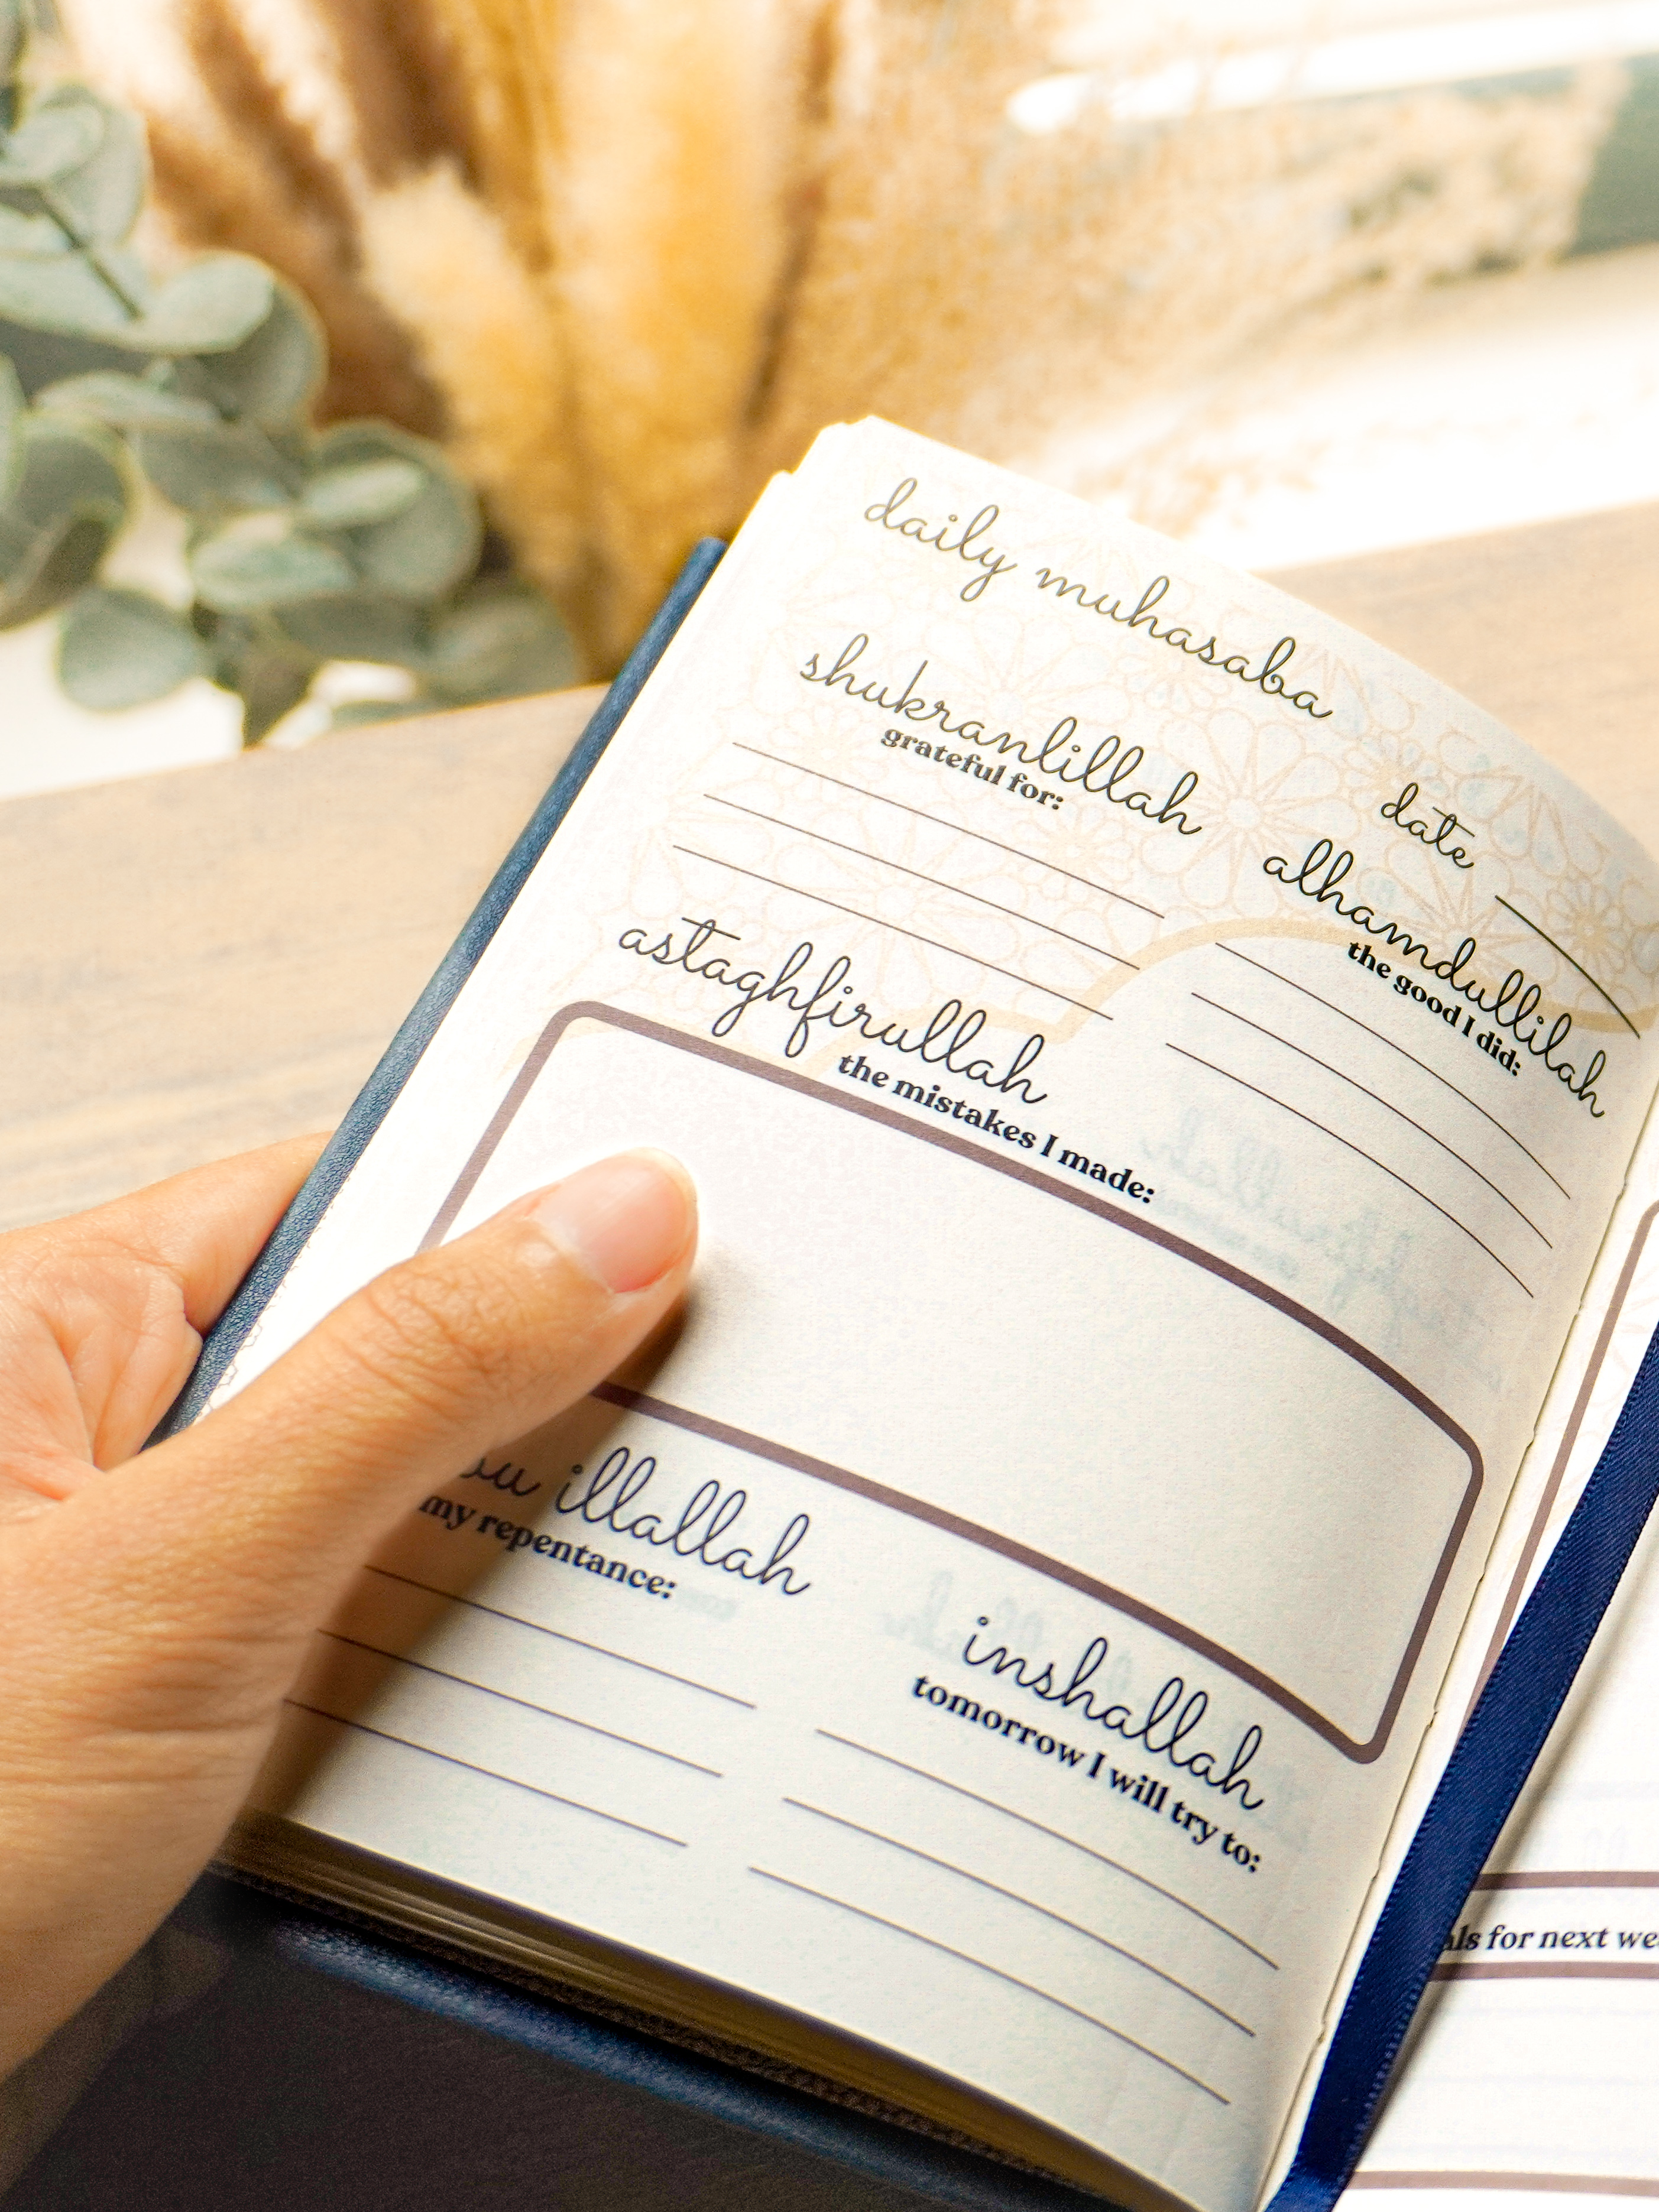 daily muhasaba
date
shukranlillah
grateful for:
alhamdullilah
the good I did:
astaghfirullah
the mistakes I made:
illallah
my repentance:
inshallah
tomorrow I will try to:
for next